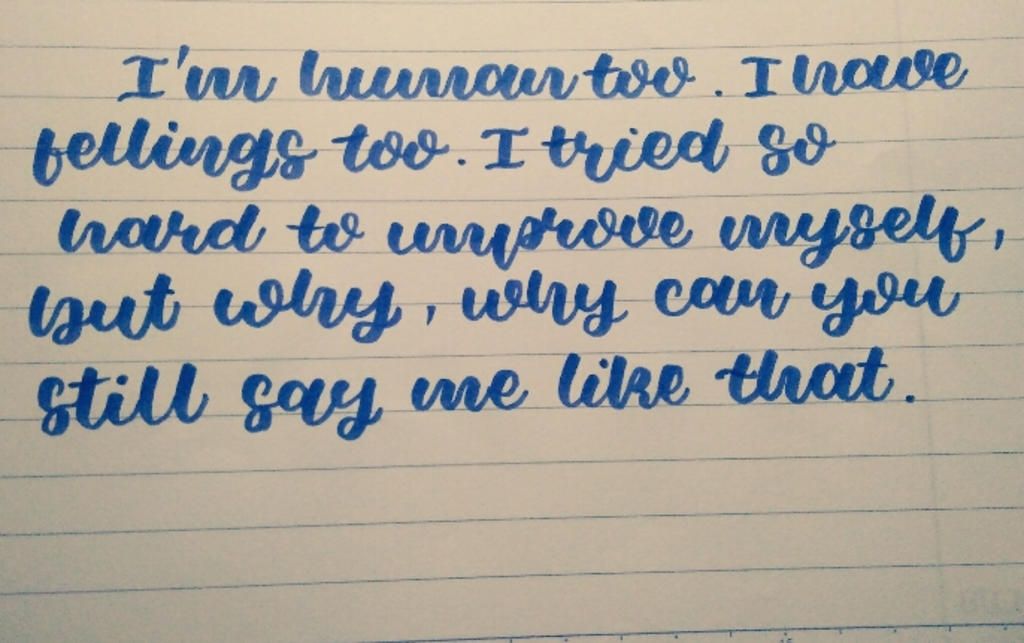 I'm human too. I have
fellings too. I tried so
hard to improve myself,
but why, why can you
still say me like that.